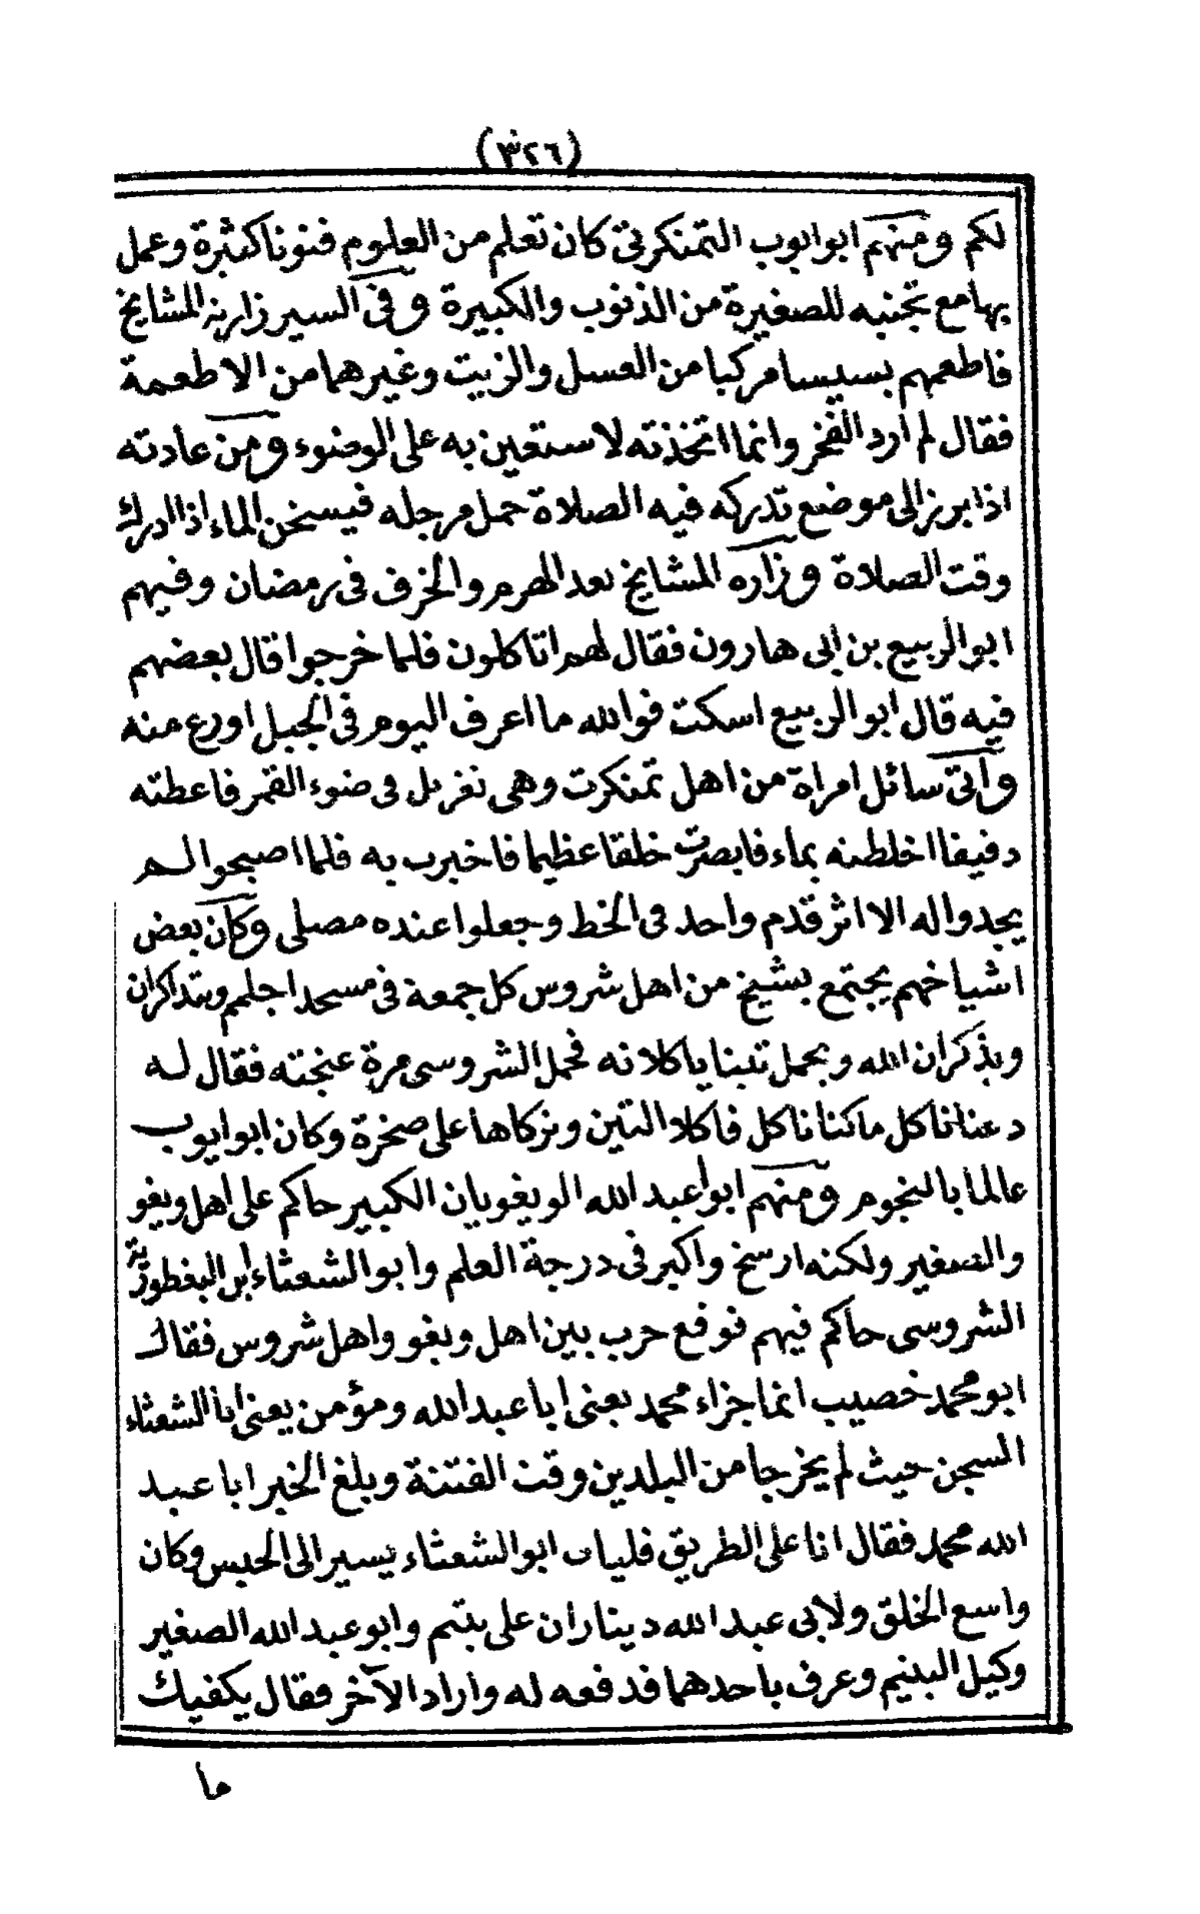 (٣٢٦)
لكم ومنهم ابو ايوب التمنكرتى كان تعلم من العلوم فنونا كثيرة وعمل
بها مع تجنبه للصغيرة من الذنوب والكبيرة وفى السير زارته المشايخ
فاطعمهم بسيسا مركبا من العسل والزيت وغيرهما من الاطعمة
فقال لم ارد الفخر وانما اتخذته لاستعين به على الوضوء ومن عادته
اذا برز الى موضع تدركه فيه الصلاة حمل مرجله فيسخن الماء اذا ادرك
وقت الصلاة وزاره المشايخ بعد الهرم والخرف فى رمضان وفيهم
ابو الربيع بن ابى هارون فقال لهم اتاكلون فلما خرجوا قال بعضهم
فيه قال ابو الربيع اسكت فوالله ما اعرف اليوم فى الجبل اورع منه
وأتى سائل امراة من اهل تمنكرت وهى تغربل فى ضوء القمر فاعطته
دقيقا اخلطنه بماء فابصرت خلقا عظيما فاخبرت به فلما اصبحوا لم
يجدوا له الا اثر قدم واحد فى الخط وجعلوا عنده مصلى وكان بعض
اشياخهم يجتمع بشيخ من اهل شروس كل جمعة فى مسجد اجلم ويتذاكران
ويذكران الله ويحمل تينا ياكلانه فحمل الشروسى مرة عنجته فقال له
دعنا ناكل ما كنا ناكل فاكلا التين وتركاها على صخرة وكان ابو ايوب
عالما بالنجوم ومنهم ابو عبد الله الويغويان الكبير حاكم على اهل ويغو
والصغير ولكنه ارسخ واكبر فى درجة العلم وأبو الشعثاء ابن البغطورية
الشروسى حاكم فيهم فوقع حرب بين اهل ويغو واهل شروس فقال
ابو محمد خصيب انما جزاء محمد يعنى ابا عبد الله ومؤمن يعنى أبا الشعثاء
السجن حيث لم يخرجا من البلدين وقت الفتنة وبلغ الخبر ابا عبد
الله محمد فقال انا على الطريق فليات ابو الشعثاء يسير الى الحبس وكان
واسع الخلق ولابى عبد الله ديناران على يتيم وابو عبد الله الصغير
وكيل اليتيم وعرف باحدهما فدفعه له واراد الآخر فقال يكفيك
ما